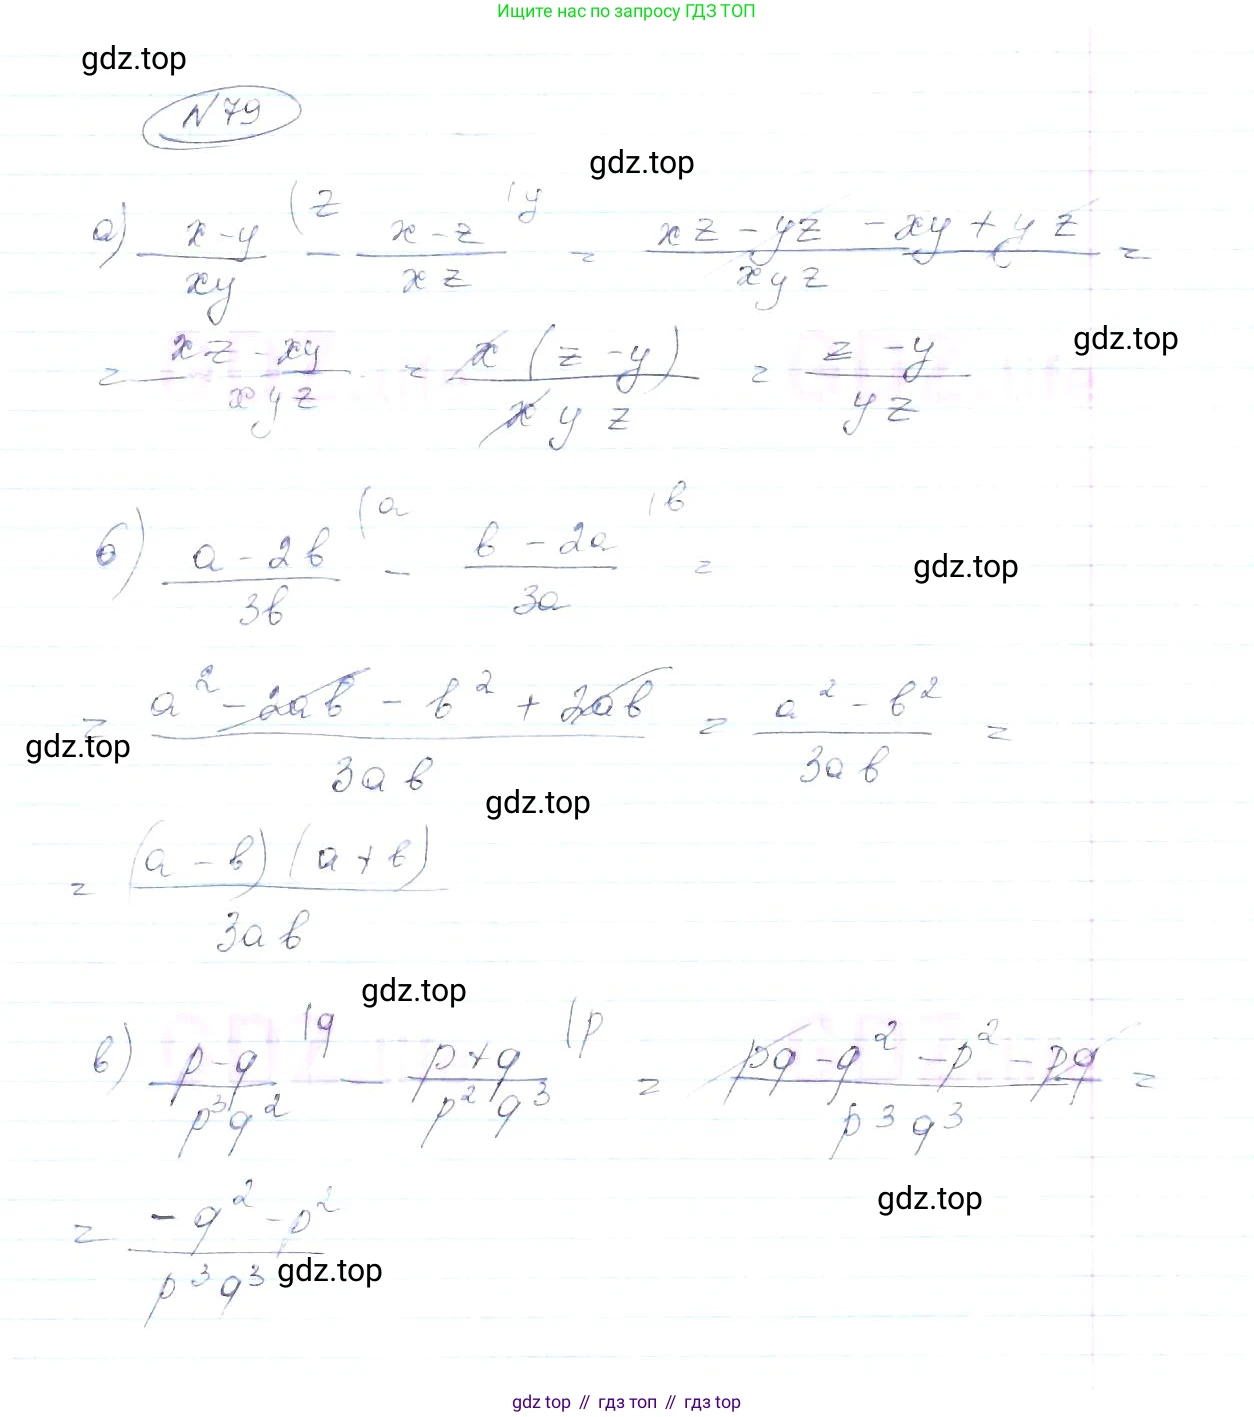 Ищите нас по запросу ГДЗ ТОП
gdz.top
N 79
gdz.top
а) (x-y)/(xy) (z - (x-z)/(xz) |y = (xz - yz - xy + yz)/(xyz) =
= (xz - xy)/(xyz) = (x(z-y))/(xyz) = (z-y)/(yz)
gdz.top
б) (a-2b)/(3b) (a - (b-2a)/(3a) |b =
gdz.top
= (a² - 2ab - b² + 2ab)/(3ab) = (a² - b²)/(3ab) =
gdz.top
gdz.top
= ((a-b)(a+b))/(3ab)
gdz.top
в) (p-q)/(p³q²) |q - (p+q)/(p²q³) |p = (pq - q² - p² - pq)/(p³q³) =
gdz.top
= (-q² - p²)/(p³q³)
gdz.top
gdz top // гдз топ // gdz top